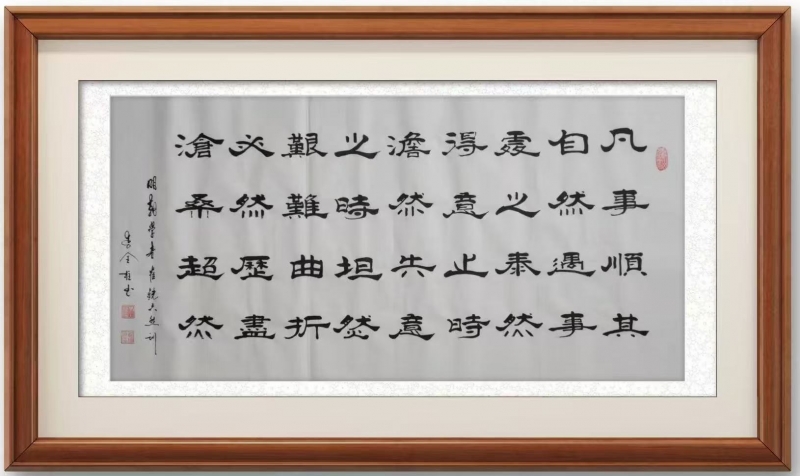 凡事順其
自然遇事
處之泰然
得意之時
澹然失意
之時坦然
艱難曲折
必然歷盡
滄桑超然
明朝學者崔銑六然训
李